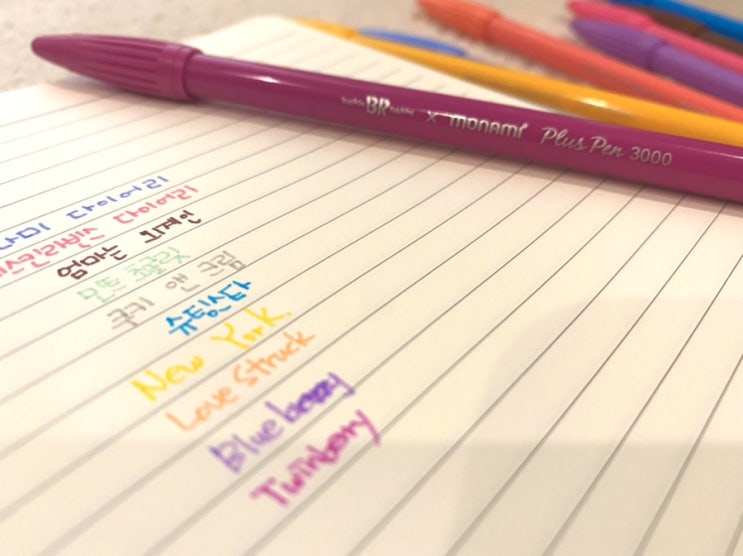 BR × monami Plus Pen 3000
다이어리
다이어리
엄마는 외계인
민트 초콜릿
쿠키 앤 크림
슈팅스타
New York.
Love struck
Blueberry
Twinberry